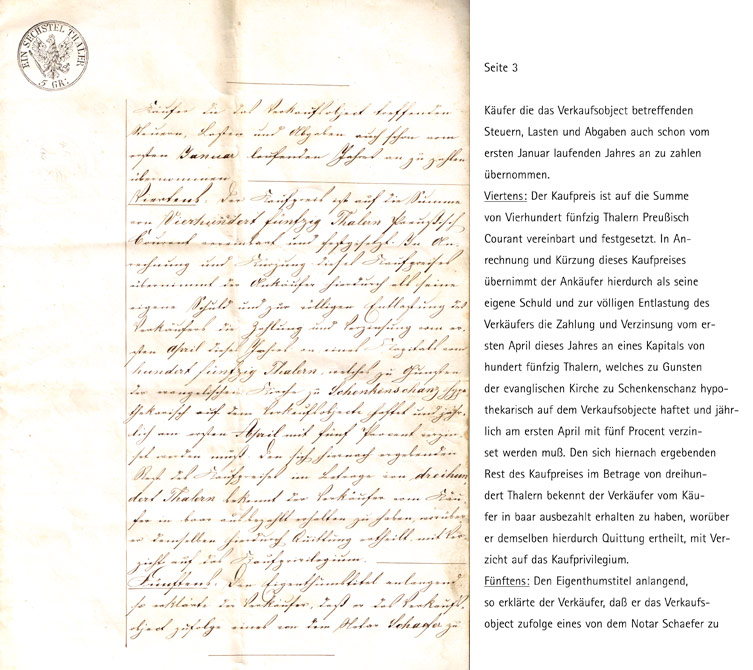 EIN SECHSTEL THALER
5 GR.
Käufer die das Verkaufsobject betreffenden
Steuern, Lasten und Abgaben auch schon vom
ersten Januar laufenden Jahres an zu zahlen
übernommen.
Viertens: Der Kaufpreis ist auf die Summe
von Vierhundert fünfzig Thalern Preußisch
Courant vereinbart und festgesetzt. In An-
rechnung und Kürzung dieses Kaufpreises
übernimmt der Ankäufer hierdurch als seine
eigene Schuld und zur völligen Entlastung des
Verkäufers die Zahlung und Verzinsung vom er-
sten April dieses Jahres an eines Kapitals von
hundert fünfzig Thalern, welches zu Gunsten
der evanglischen Kirche zu Schenkenschanz hypo-
thekarisch auf dem Verkaufsobjecte haftet und jähr-
lich am ersten April mit fünf Procent verzin-
set werden muß. Den sich hiernach ergebenden
Rest des Kaufpreises im Betrage von dreihun-
dert Thalern bekennt der Verkäufer vom Käu-
fer in baar ausbezahlt erhalten zu haben, worüber
er demselben hierdurch Quittung ertheilt, mit Ver-
zicht auf das Kaufprivilegium.
Fünftens: Den Eigenthumstitel anlangend,
so erklärte der Verkäufer, daß er das Verkaufs-
object zufolge eines von dem Notar Schaefer zu
Seite 3
Käufer die das Verkaufsobject betreffenden
Steuern, Lasten und Abgaben auch schon vom
ersten Januar laufenden Jahres an zu zahlen
übernommen.
Viertens: Der Kaufpreis ist auf die Summe
von Vierhundert fünfzig Thalern Preußisch
Courant vereinbart und festgesetzt. In An-
rechnung und Kürzung dieses Kaufpreises
übernimmt der Ankäufer hierdurch als seine
eigene Schuld und zur völligen Entlastung des
Verkäufers die Zahlung und Verzinsung vom er-
sten April dieses Jahres an eines Kapitals von
hundert fünfzig Thalern, welches zu Gunsten
der evanglischen Kirche zu Schenkenschanz hypo-
thekarisch auf dem Verkaufsobjecte haftet und jähr-
lich am ersten April mit fünf Procent verzin-
set werden muß. Den sich hiernach ergebenden
Rest des Kaufpreises im Betrage von dreihun-
dert Thalern bekennt der Verkäufer vom Käu-
fer in baar ausbezahlt erhalten zu haben, worüber
er demselben hierdurch Quittung ertheilt, mit Ver-
zicht auf das Kaufprivilegium.
Fünftens: Den Eigenthumstitel anlangend,
so erklärte der Verkäufer, daß er das Verkaufs-
object zufolge eines von dem Notar Schaefer zu